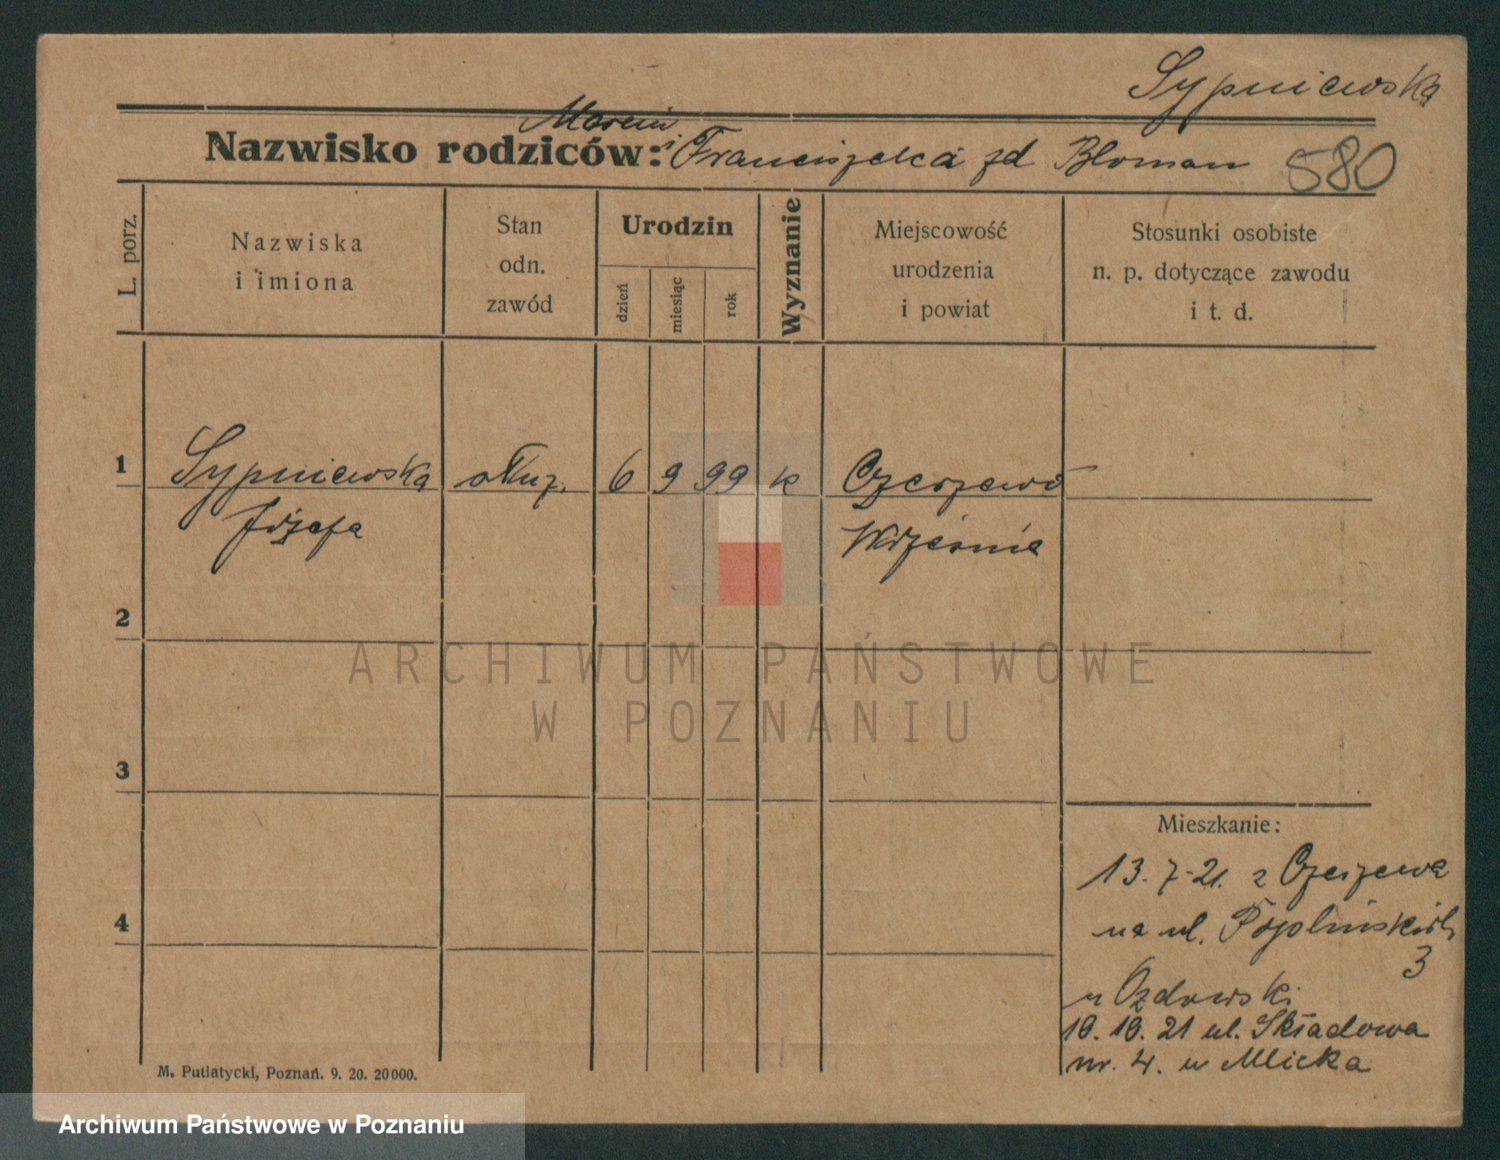 Sypniewska
Marcin i
Nazwisko rodziców: Franciszka zd Bloman 580
L. porz.
Nazwiska
i imiona
Stan
odn.
zawód
Urodzin
dzień
miesiąc
rok
Wyznanie
Miejscowość
urodzenia
i powiat
Stosunki osobiste
n. p. dotyczące zawodu
i t. d.
1 Sypniewska służ. 6 9 99 k Czeszewo
Józefa Września
2
3
4
Mieszkanie:
13. 7. 21. z Czeszewa
na ul.
3
u Ozdowski
10. 10. 21 ul. Składowa
nr. 4. u Mlicka
M. Putiatycki, Poznań. 9. 20. 20000.
ARCHIWUM PAŃSTWOWE
W POZNANIU
Archiwum Państwowe w Poznaniu